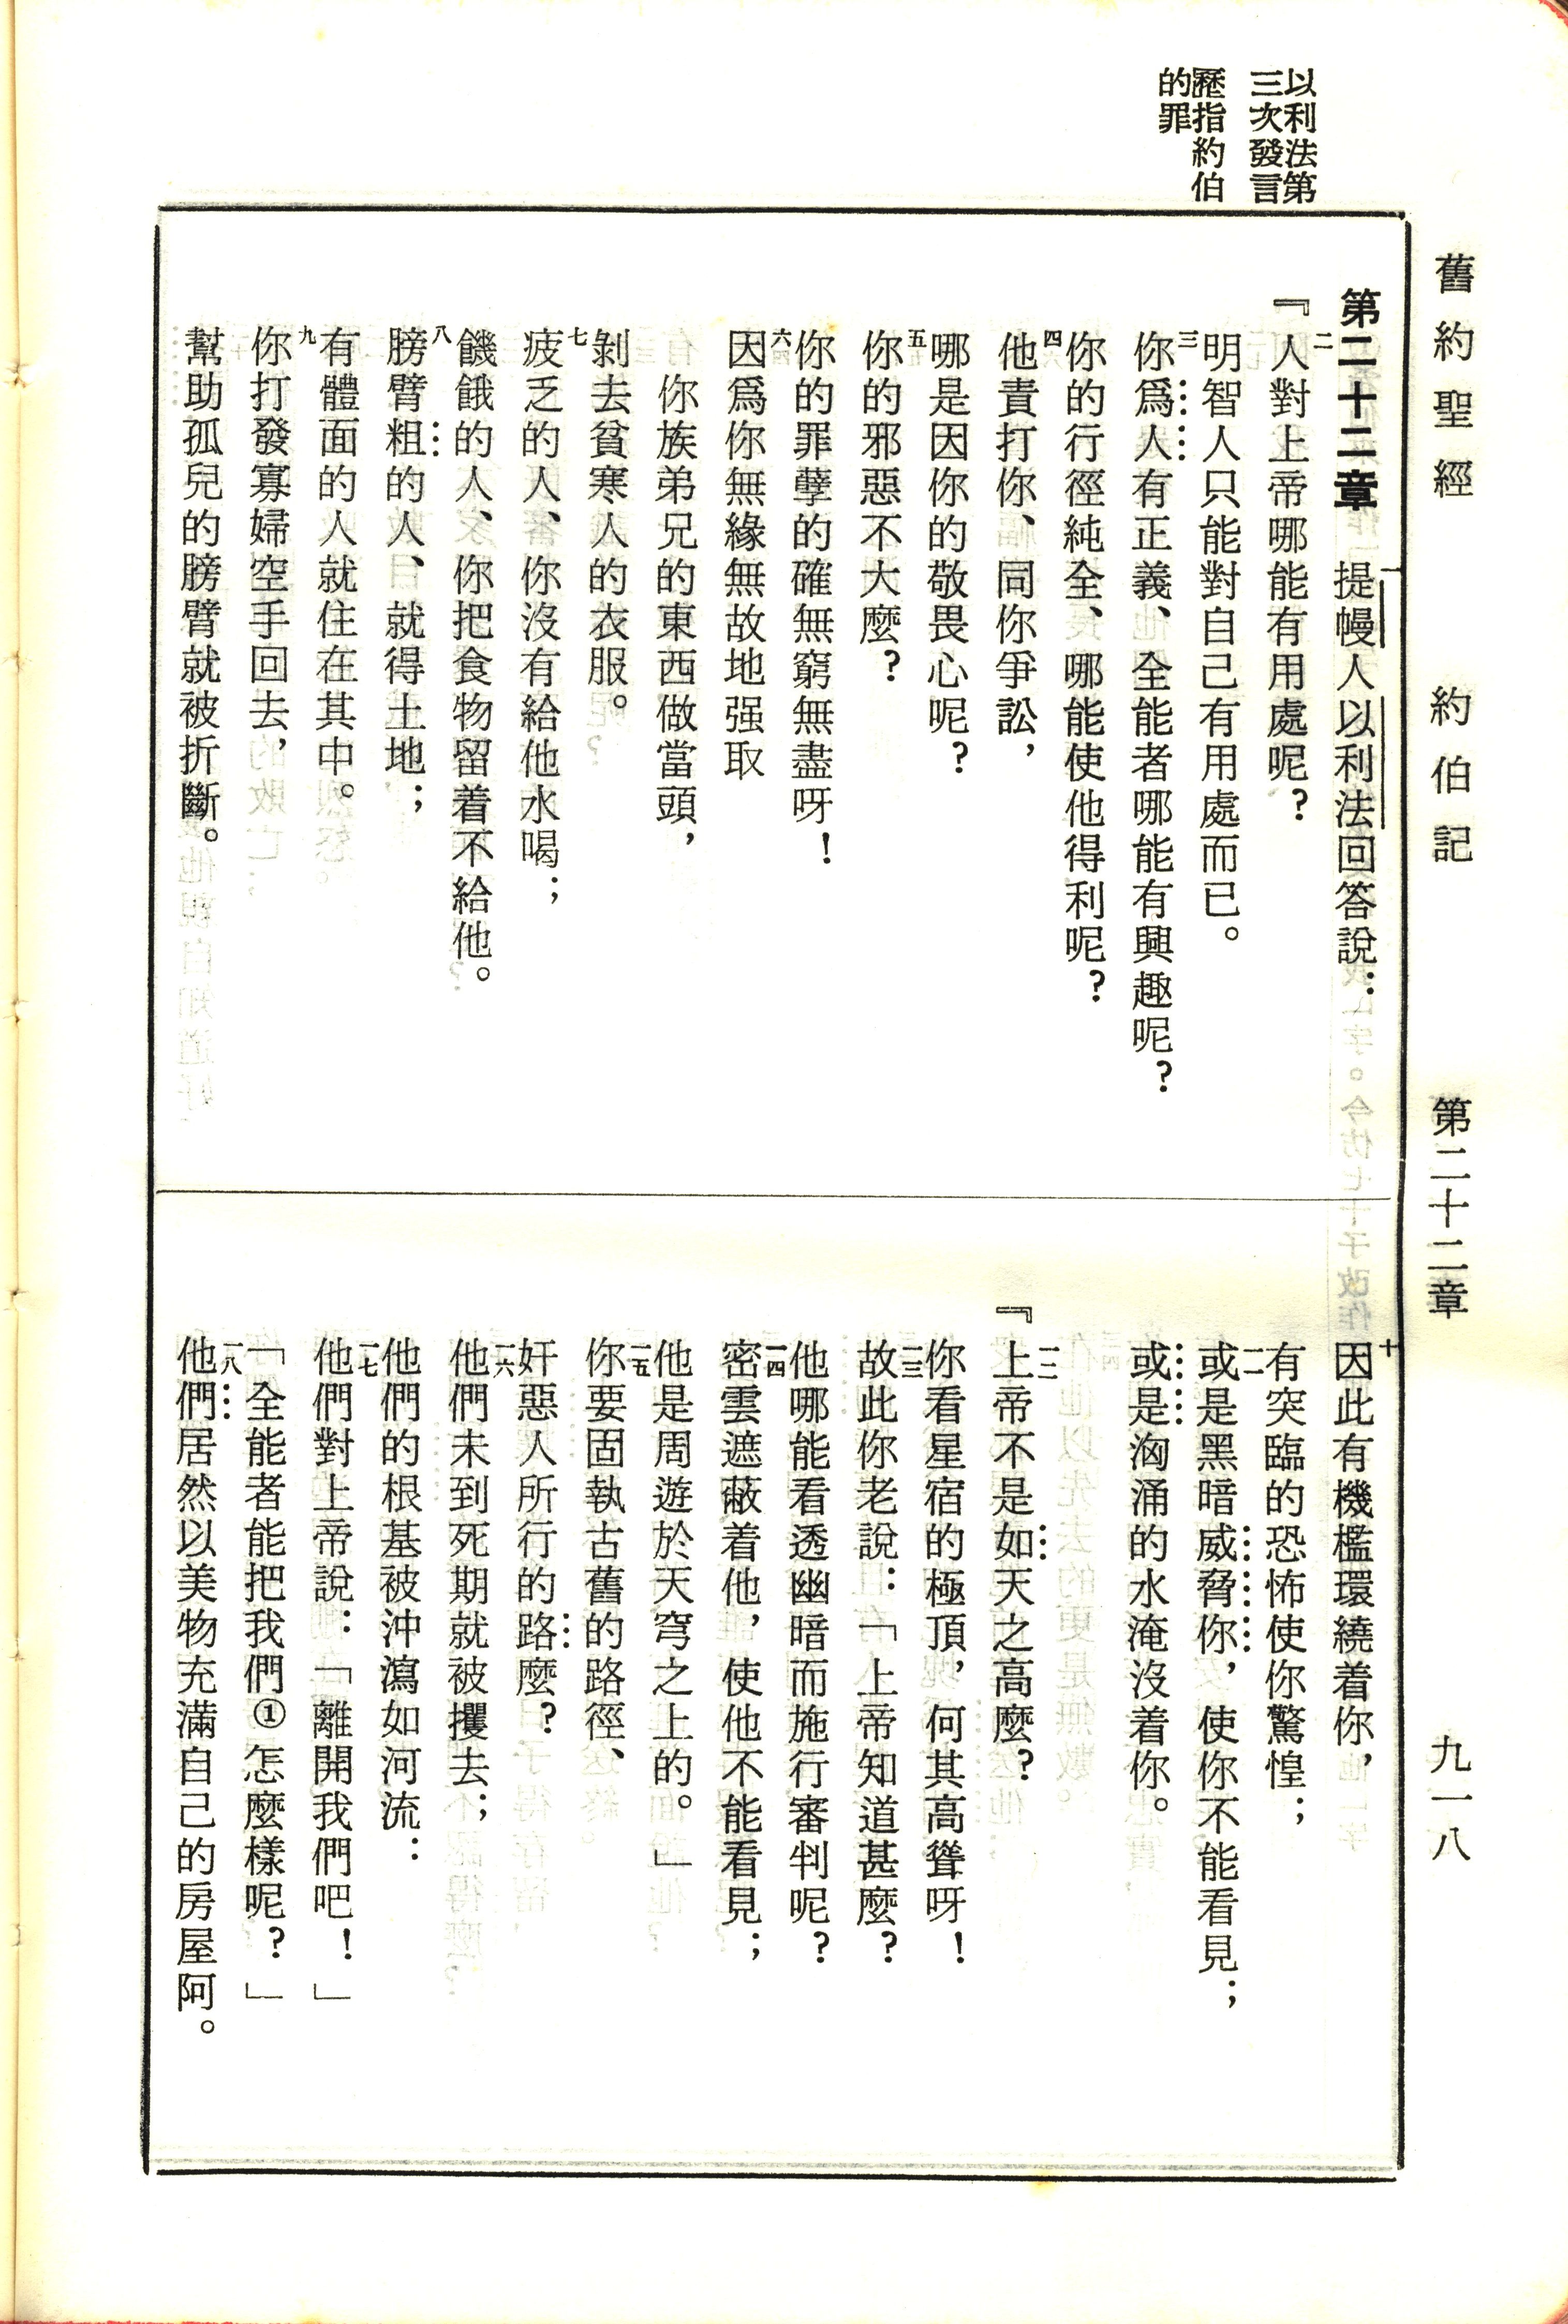 舊約聖經　約伯記　第二十二章　九一八
以利法第
三次發言
歷指約伯
的罪
第二十二章　一提幔人以利法回答說：
『二人對上帝哪能有用處呢？
明智人只能對自己有用處而已。
三你爲人有正義、全能者哪能有興趣呢？
你的行徑純全、哪能使他得利呢？
四他責打你、同你爭訟，
哪是因你的敬畏心呢？
五你的邪惡不大麼？
你的罪孽的確無窮無盡呀！
六因爲你無緣無故地强取
你族弟兄的東西做當頭，
剝去貧寒人的衣服。
七疲乏的人、你沒有給他水喝；
饑餓的人、你把食物留着不給他。
八膀臂粗的人、就得土地；
有體面的人就住在其中。
九你打發寡婦空手回去，
幫助孤兒的膀臂就被折斷。
十因此有機檻環繞着你，
有突臨的恐怖使你驚惶；
一一或是黑暗威脅你，使你不能看見；
或是洶涌的水淹沒着你。
『一二上帝不是如天之高麼？
你看星宿的極頂，何其高聳呀！
一三故此你老說：「上帝知道甚麼？
他哪能看透幽暗而施行審判呢？
一四密雲遮蔽着他，使他不能看見；
他是周遊於天穹之上的。」
一五你要固執古舊的路徑、
奸惡人所行的路麼？
一六他們未到死期就被攫去；
他們的根基被沖瀉如河流：
一七他們對上帝說：「離開我們吧！」
「全能者能把我們①怎麼樣呢？」
一八他們居然以美物充滿自己的房屋阿。